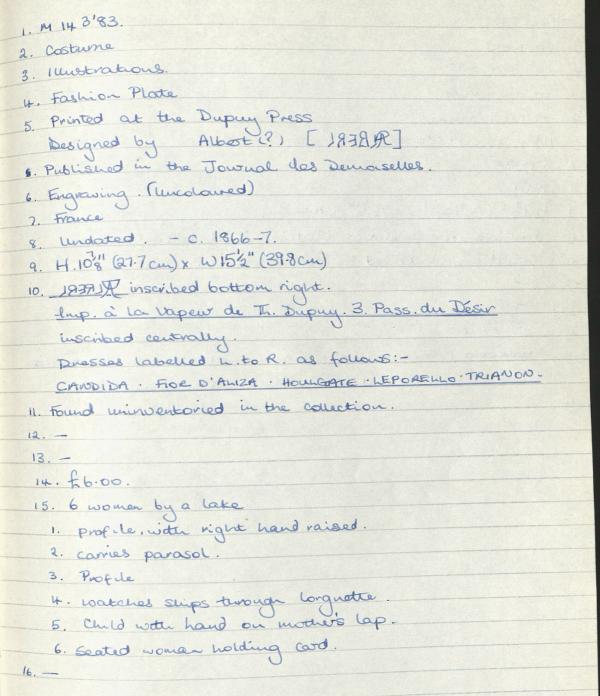 1. M 14 3'83.
2. Costume
3. Illustrations.
4. Fashion Plate
5. Printed at the Dupuy Press
Designed by Albert (?) [ ]
6. Published in the Journal des Demoiselles.
6. Engraving. (Uncoloured)
7. France
8. Undated. - c. 1866-7.
9. H. 10 7/8" (27.7cm) x W 15 1/2" (39.8cm)
10. inscribed bottom right.
Imp. à la Vapeur de Th. Dupuy. 3. Pass. du Désir
inscribed centrally.
Dresses labelled L. to R. as follows:-
CANDIDA · FIOR D'ALIZA · HOULGATE · LEPORELLO · TRIANON.
11. Found uninventoried in the collection.
12. -
13. -
14. £6.00.
15. 6 women by a lake
1. profile, with right hand raised.
2. carries parasol.
3. Profile
4. watches ships through lorgnette.
5. Child with hand on mother's lap.
6. Seated woman holding card.
16. -